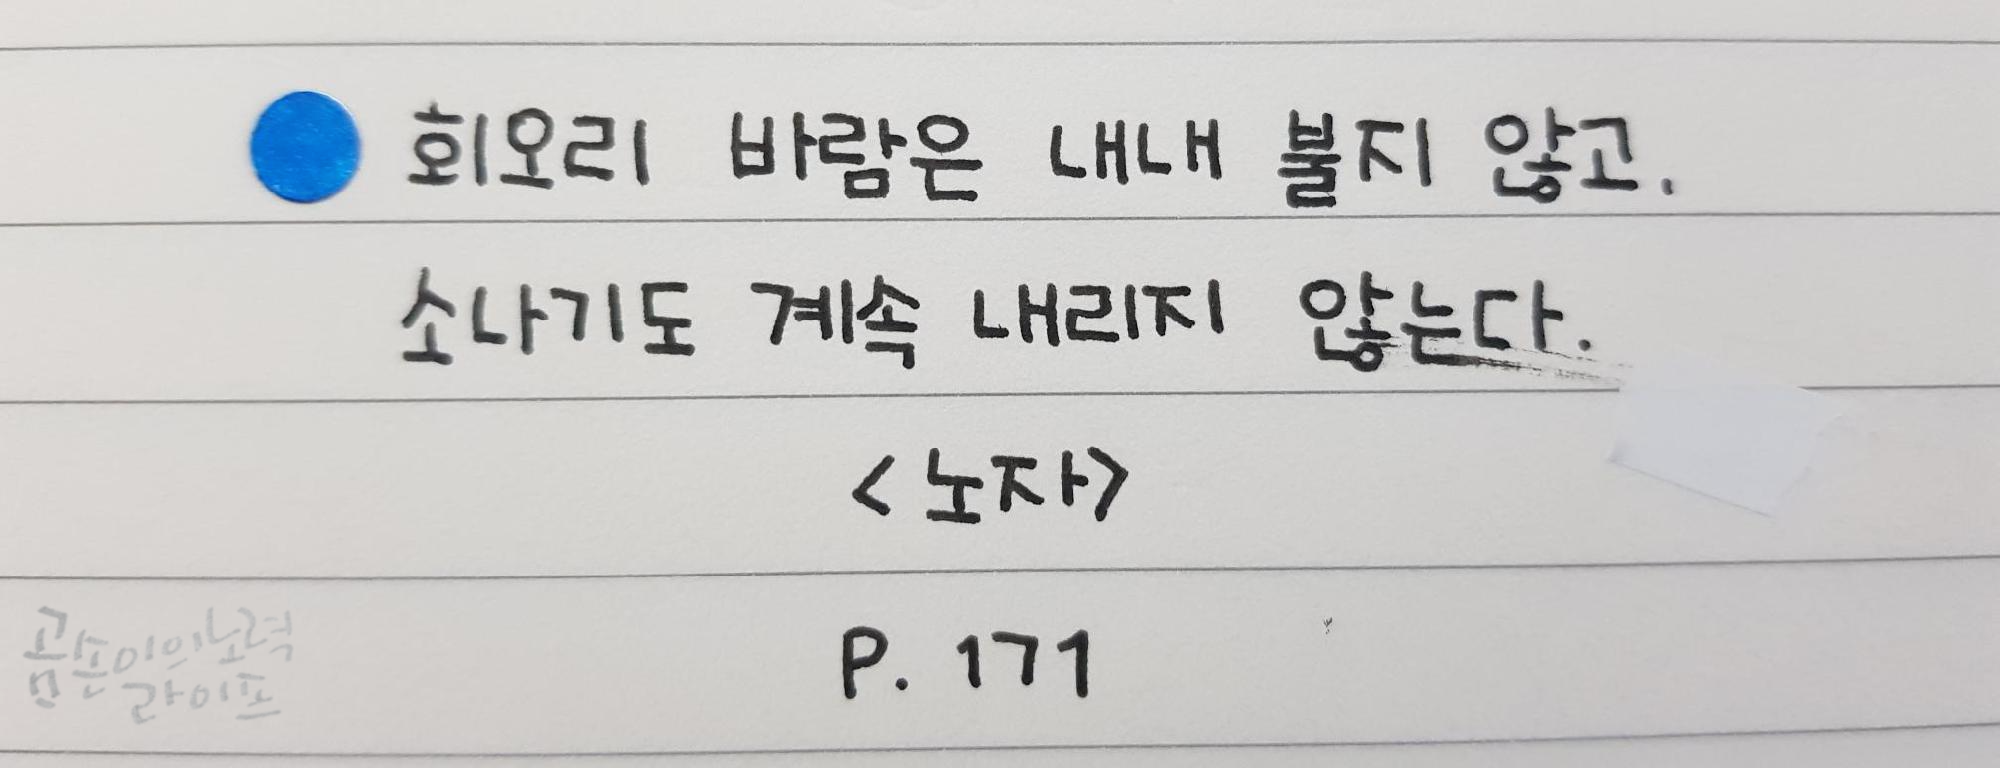 회오리 바람은 내내 불지 않고.
소나기도 계속 내리지 않는다.
<노자>
P. 171
곰손이의노력
라이프